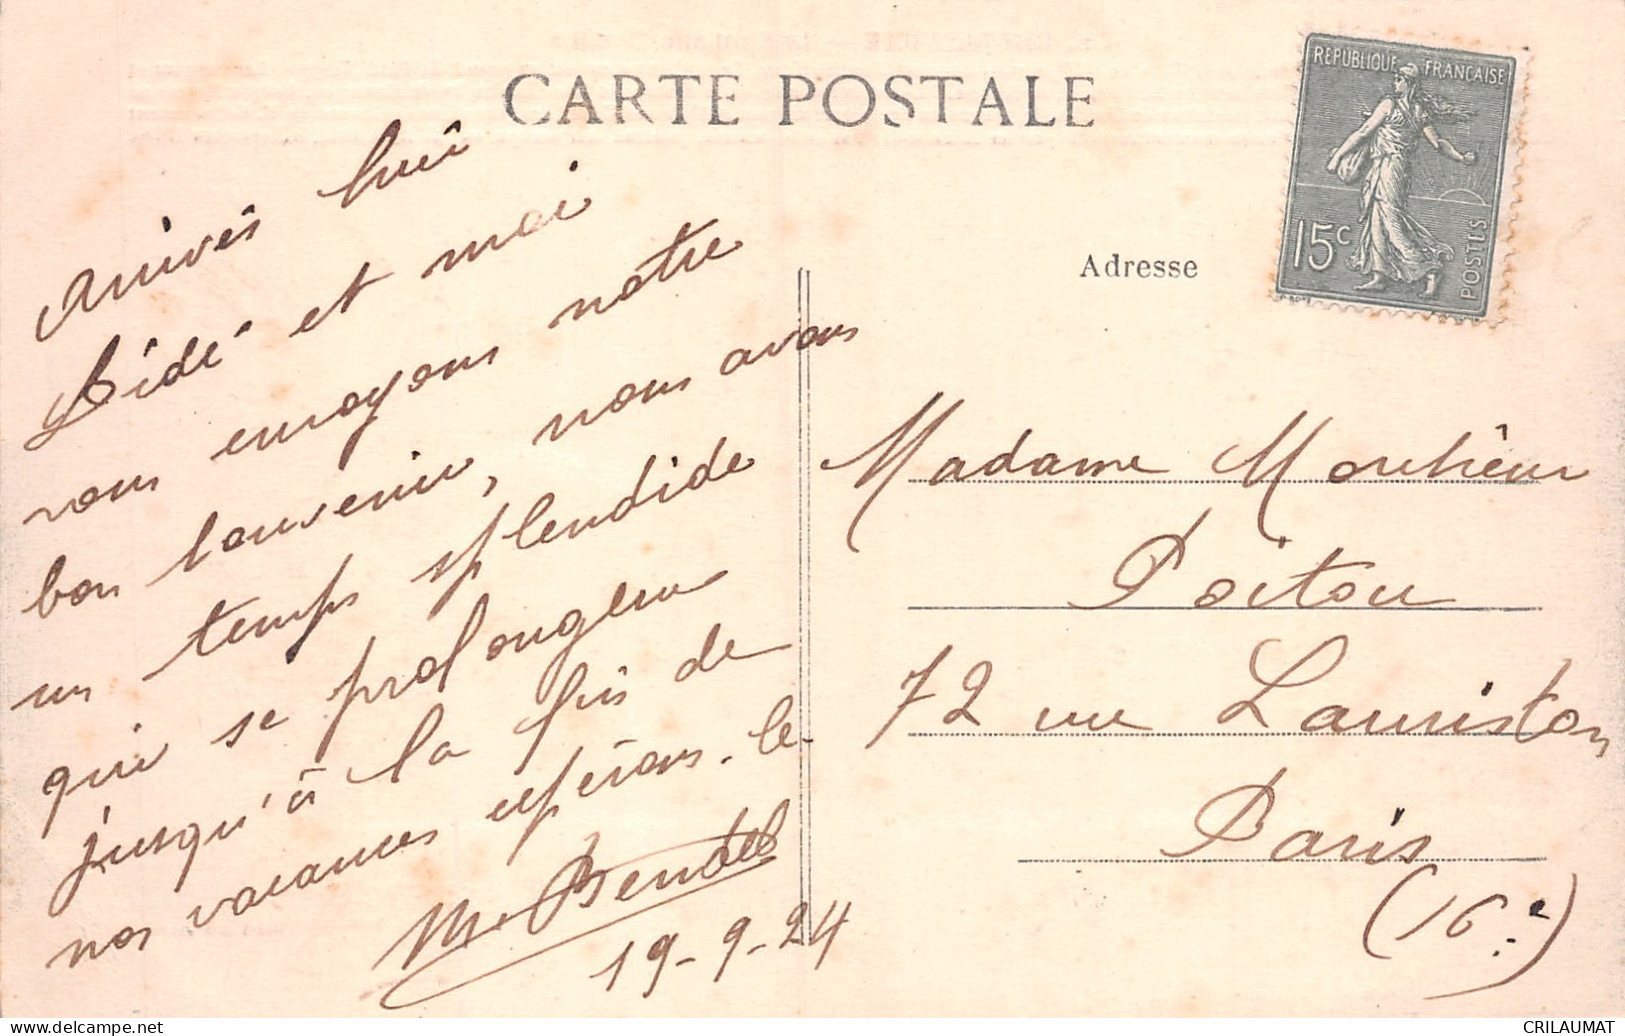 CARTE POSTALE
REPUBLIQUE FRANCAISE
15c
POSTES
Adresse
Arrivés hui
Dédé et moi
vous envoyons notre
bon souvenir, nous avons
un temps splendide
qui se prolongera
jusqu'à la fin de
nos vacances espérons-le.
19-9-24
Madame
Poitou
72 rue Lauriston
Paris
(16e)
delcampe.net
CRILAUMAT